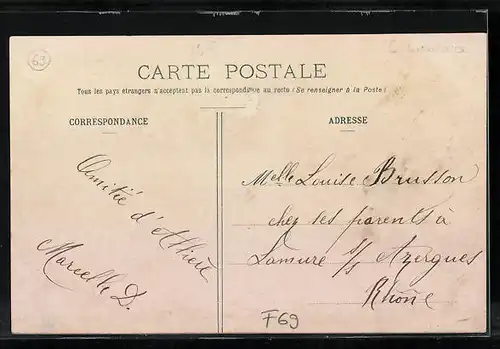 63
CARTE POSTALE
Tous les pays étrangers n'acceptent pas la correspondance au recto (Se renseigner à la Poste)
CORRESPONDANCE
ADRESSE
Amitié d'
Marcelle D.
Melle Louise Brusson
chez ses parents à
Lamure s/s Azergues
Rhône
F69